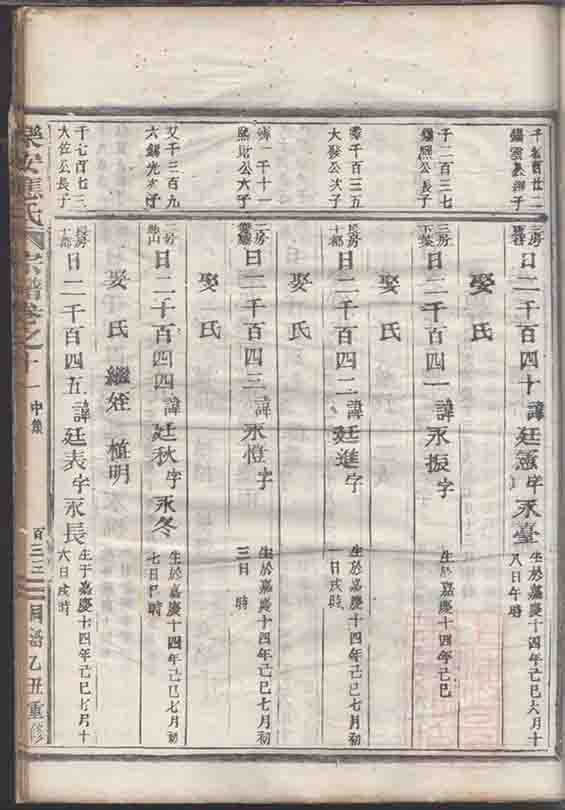 三房
日二千百四十諱廷憲字永臺
生於嘉慶十四年己巳六月十
八日午時
娶氏
子二百三七
公長子
三房
日二千百四一諱永振字
生於嘉慶十四年己巳
娶氏
千百三五
大發公次子
長房
十都
日二千百四二諱廷進字
生於嘉慶十四年己巳七月初
一日戌時
娶氏
千十一
公六子
三房
日二千百四三諱永愷字
生於嘉慶十四年己巳七月初
三日 時
娶氏
文千三百九
六錫光次子
房
日二千百四四諱廷秋字永冬
生於嘉慶十四年己巳七月初
七日巳時
娶氏 繼姪 植明
千七百七三
大佐公長子
長房
十都
日二千百四五諱廷表字永長
生于嘉慶十四年己巳七月十
六日戌時
樂安應氏宗譜卷之十一
中集
百三三
乙丑重修